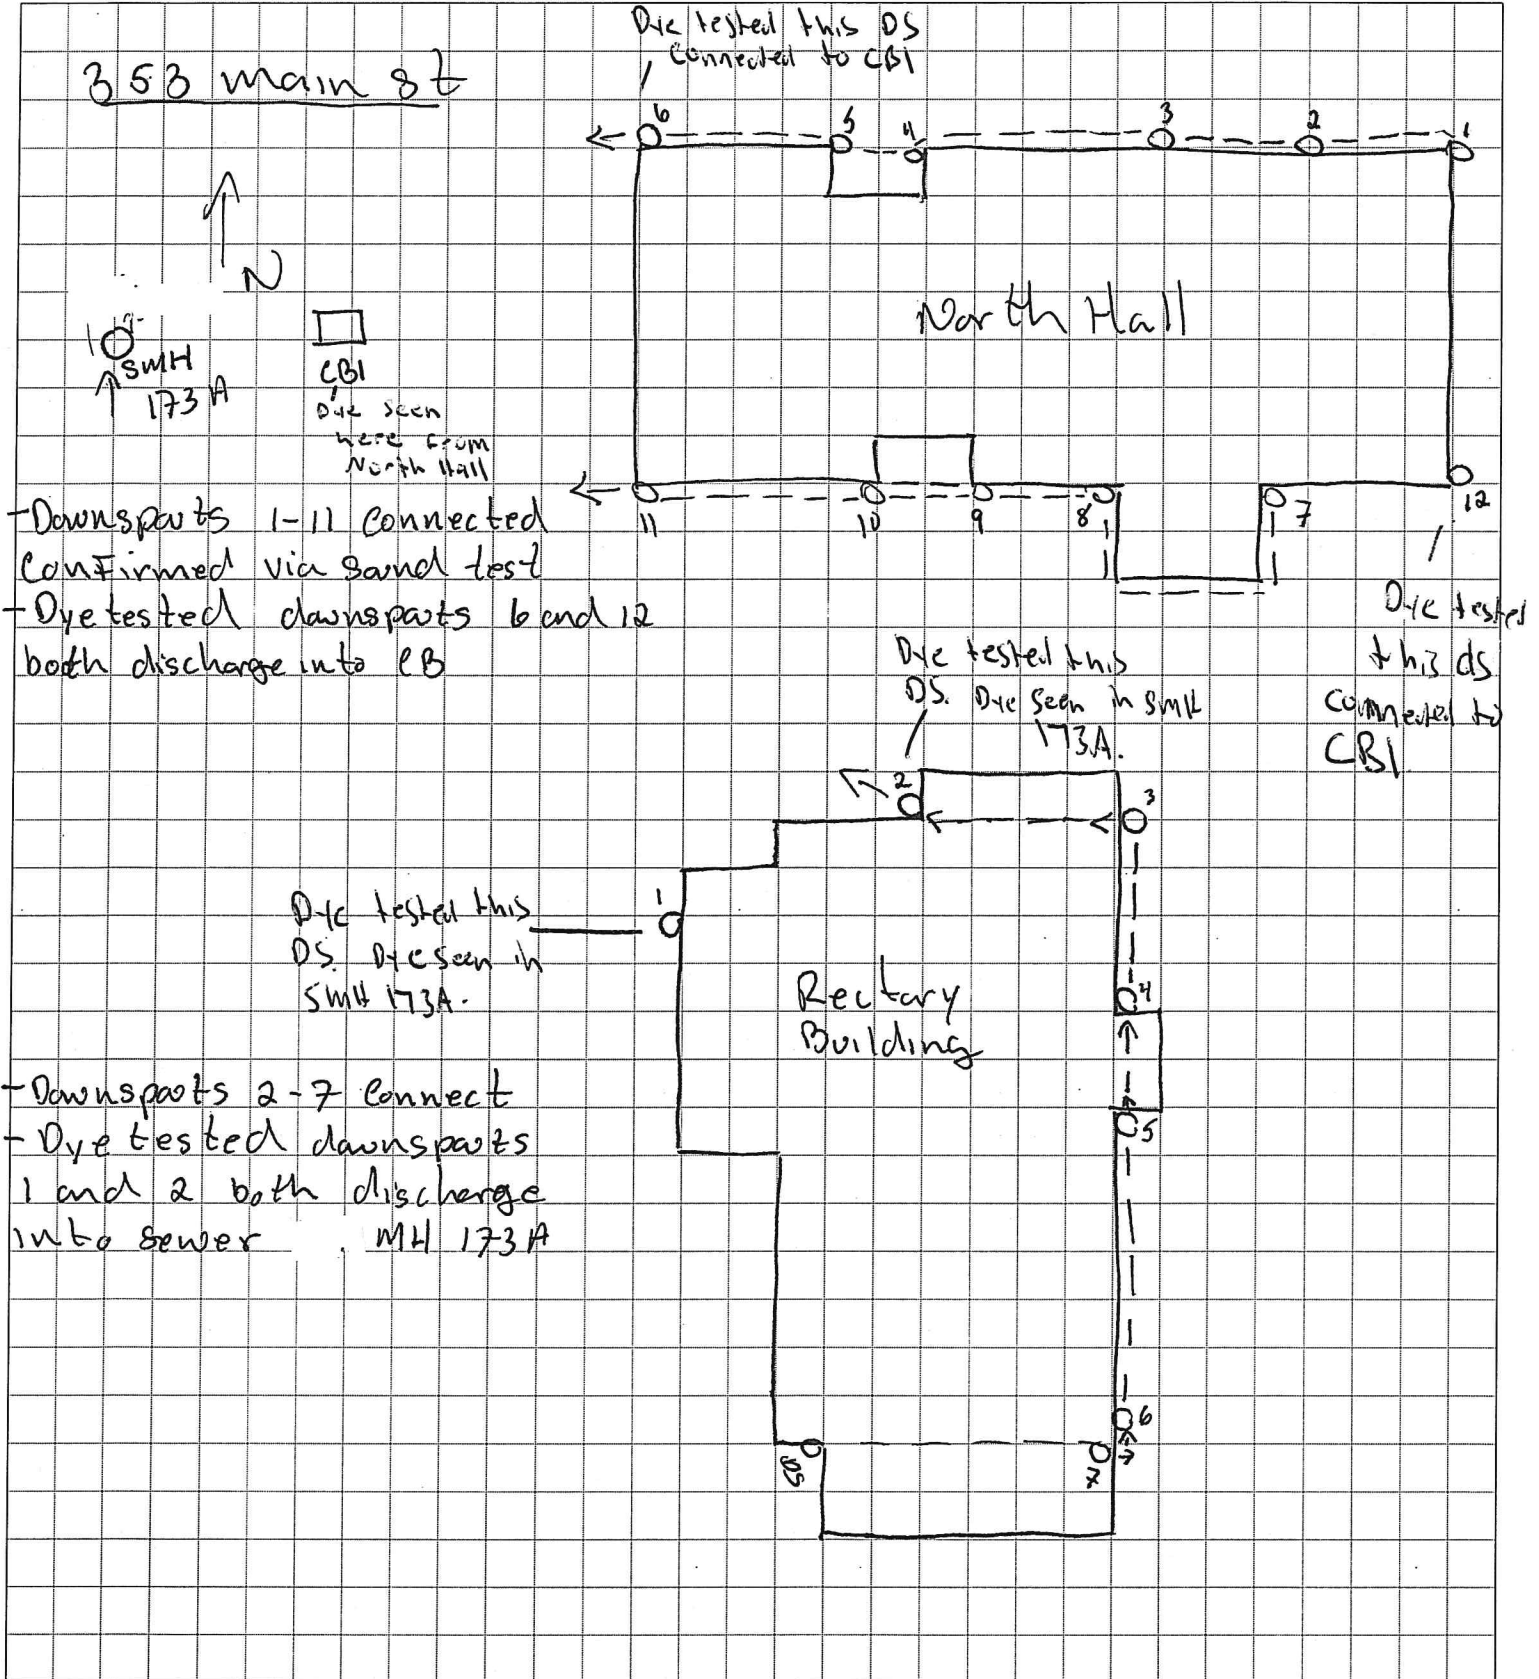 353 main st
Dye tested this DS
connected to CB1
6
5
4
3
2
1
N
North Hall
SMH
173A
CB1
Dye seen
here from
North Hall
11
10
9
8
7
12
-Downspouts 1-11 connected
confirmed via sound test
-Dye tested downspouts 6 and 12
both discharge into CB
Dye tested
this ds
connected to
CB1
Dye tested this
DS. Dye seen in SMH
173A.
2
3
1
Dye tested this
DS. Dye seen in
SMH 173A.
4
Rectory
Building
5
-Downspouts 2-7 connect
-Dye tested downspouts
1 and 2 both discharge
into sewer . MH 173A
6
8
7